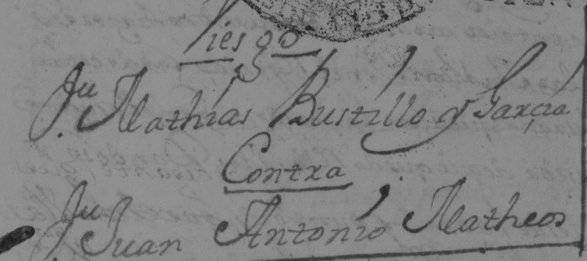 Riesgo
Ju Mathias Bustillo y Garçia
Contra
Ju Juan Antonio Matheos